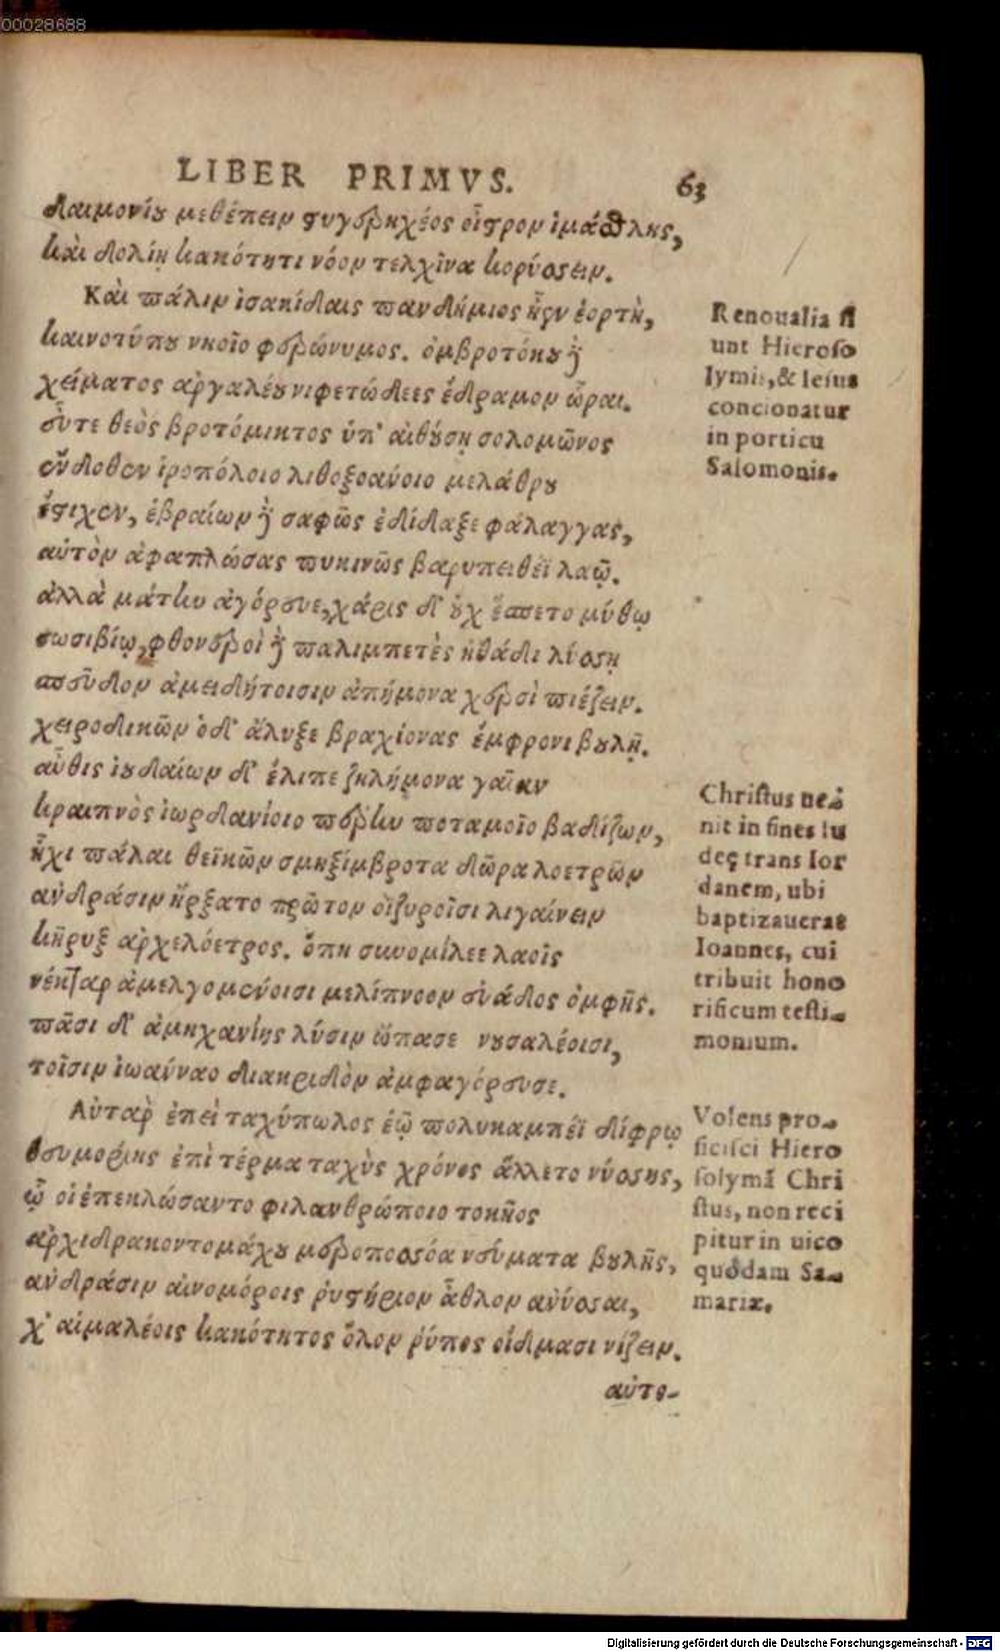 00028688
LIBER PRIMVS. 63
δαιμονίου μεθέπειν στυγερηχέος οἶστρον ἱμάσθλης,
καὶ δολίῃ κακότητι νόον τελχῖνα κορύσσειν.
Καὶ πάλιν ἰσακίδαις πανδήμιος ἦεν ἑορτὴ,
καινοτύπου νηοῖο φερώνυμος. ὀμβροτόκου δὲ
χείματος ἀργαλέου νιφετώδεες ἔδραμον ὧραι.
εὖτε θεὸς βροτόμικτος ὑπ' αἰθούσῃ σολομῶνος
ἔνδοθεν ἱροπόλοιο λιθοξοάνοιο μελάθρου
ἔστιχεν, ἑβραίων δὲ σαφῶς ἐδίδαξε φάλαγγας,
αὐτὸν ἀφαπλώσας πυκινῶς βαρυπειθέϊ λαῷ.
ἀλλὰ μάτην ἀγόρευε, χάρις δ' οὐχ ἕσπετο μύθῳ
σωσιβίῳ, φθονεροὶ δὲ παλιμπετὲς ἠθάδι λύσσῃ
σπεῦδον ἀμειδήτοισιν ἀπήμονα χερσὶ πιέζειν.
χειροδικῶν ὁ δ' ἄλυξε βραχίονας ἔμφρονι βουλῇ.
αὖθις ἰουδαίων δ' ἔλιπε ζηλήμονα γαῖαν
κραιπνὸς ἰωρδανίοιο πέρην ποταμοῖο βαδίζων,
ἧχι πάλαι θεϊκῶν σμηξίμβροτα δῶρα λοετρῶν
ἀνδράσιν ἤρξατο πρῶτον ὀϊζυροῖσι λιγαίνειν
κῆρυξ ἀρχελόετρος. ὅπη συνομίλεε λαοῖς
νέκταρ ἀμελγομένοισι μελίπνοον εὐάδος ὀμφῆς.
πᾶσι δ' ἀμηχανίης λύσιν ὤπασε νουσαλέοισι,
τοῖσιν ἰωάνναο διακριδὸν ἀμφαγόρευσε.
Αὐτὰρ ἐπεὶ ταχύπωλος ἑῷ πολυκαμπέϊ δίφρῳ
θευμορίης ἐπὶ τέρμα ταχὺς χρόνος ἅλλετο νύσσης,
ᾧ οἱ ἐπεκλώσαντο φιλανθρώποιο τοκῆος
ἀρχιδρακοντομάχου μεροποσσόα νεύματα βουλῆς,
ἀνδράσιν αἰνομόροις ῥυστήριον ἆθλον ἀνύσσαι,
χ' αἱμαλέοις κακότητος ὅλον ῥύπος οἴδμασι νίζειν.
αὐτο-
Renoualia fi
unt Hieroso
lymis, & Iesus
concionatur
in porticu
Salomonis.
Christus ueˉ
nit in fines Iu
deę trans Ior
danem, ubi
baptizauerat
Ioannes, cui
tribuit hono
rificum testi-
monium.
Volens pro-
ficisci Hiero
solymã Chri
stus, non reci
pitur in uico
quodam Sa-
mariæ.
Digitalisierung gefördert durch die Deutsche Forschungsgemeinschaft - DFG